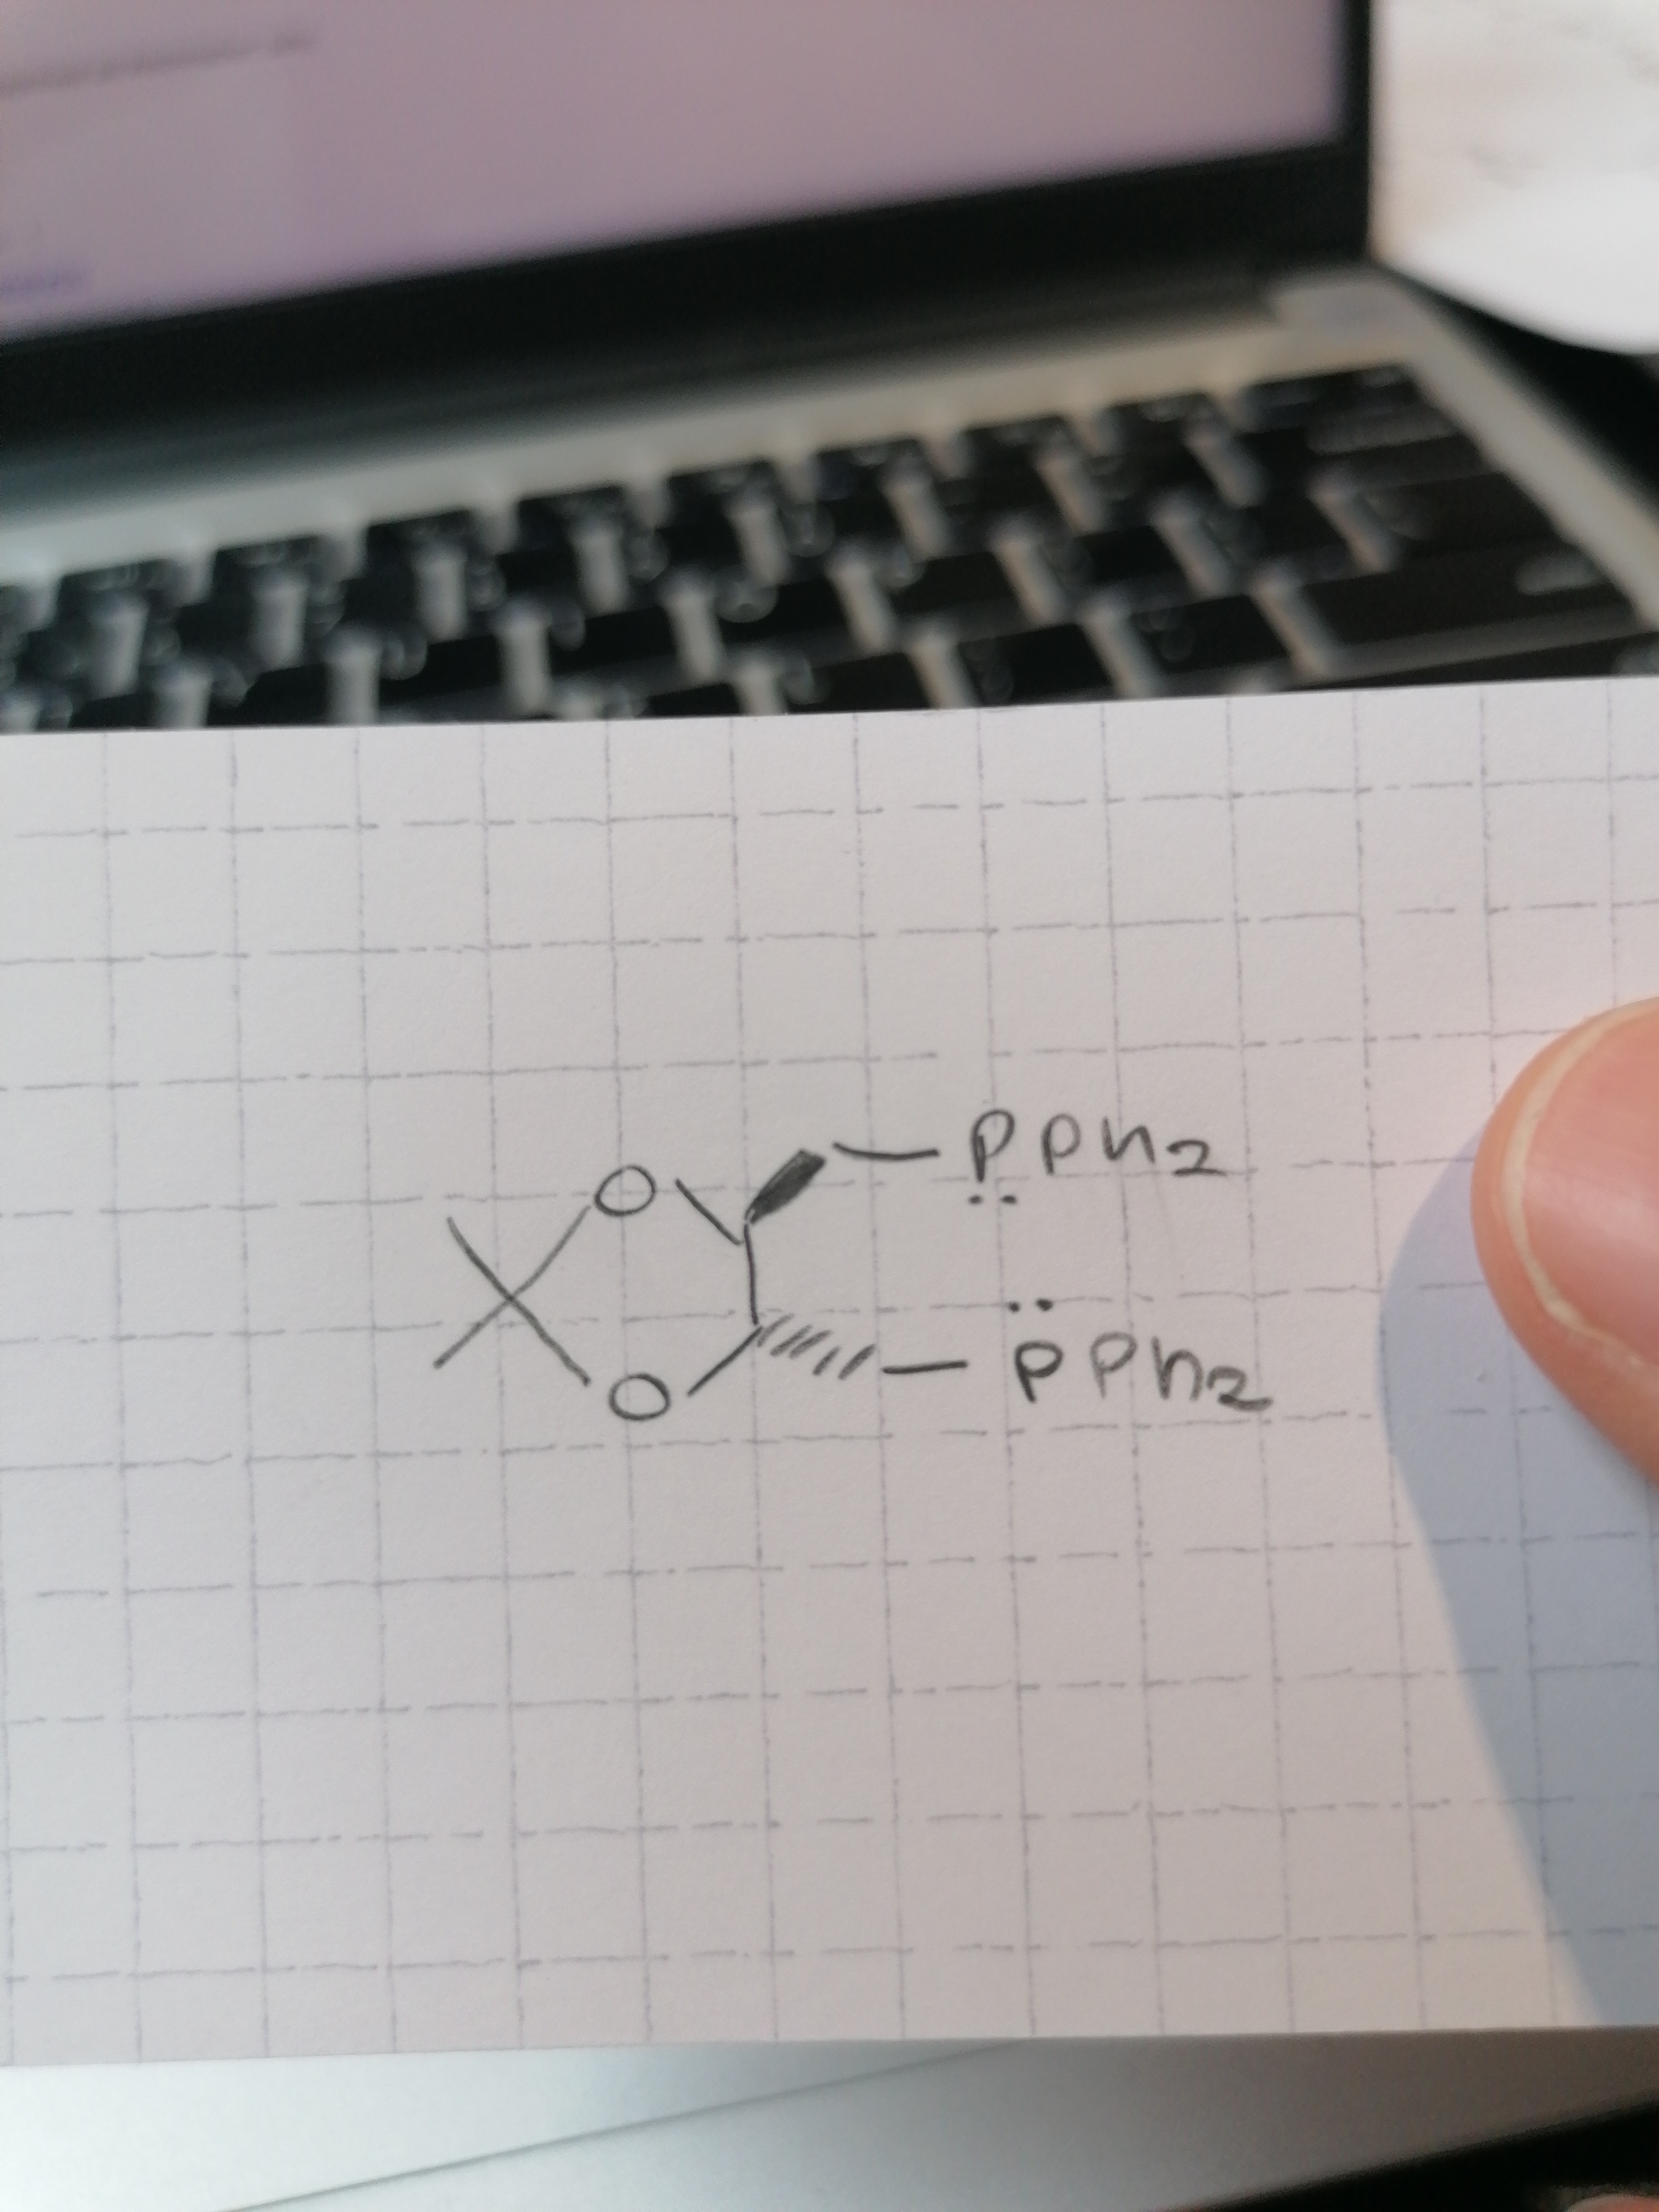 O PPh₂
O PPh₂